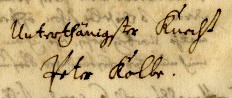 Unterthänigster Knecht
Peter Kolbe.